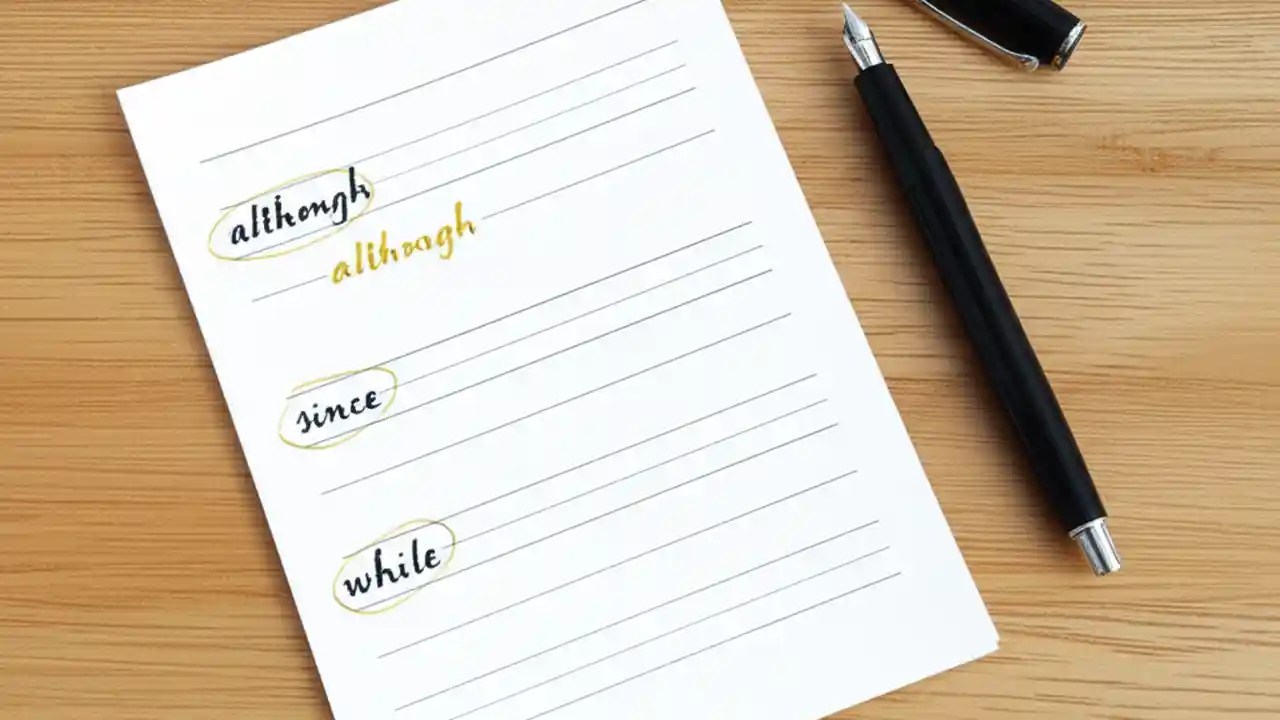 although
although
since
while